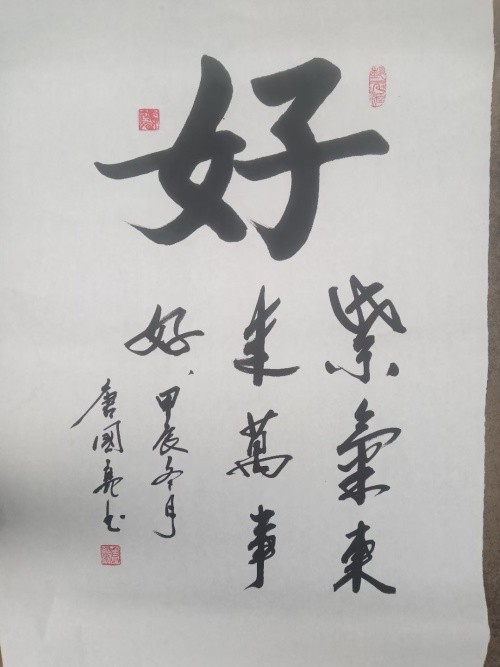 好
紫氣東
來萬事
好、甲辰冬月
唐國亮书